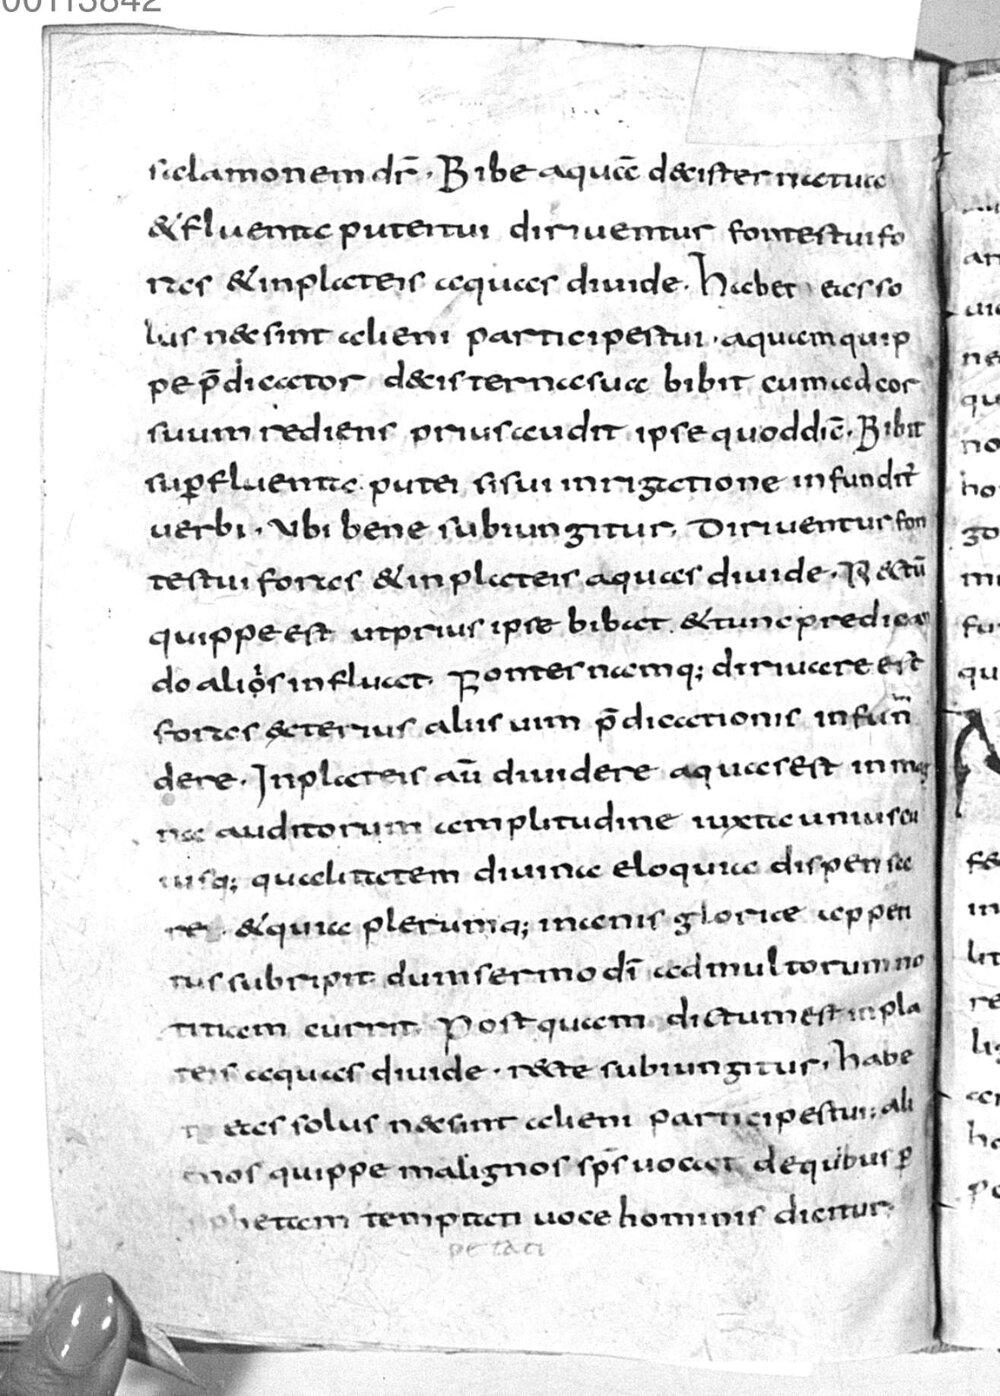 00113842
salamonem dr̄. Bibe aquā de cisterna tua
& fluenta putei tui diriventur fontes tui fo
ras & in plateis aquas divide. Habeto eas so
lus nec sint alieni participes tui. aquam quip
pe p̄dicator de cisterna sua bibit cum ad cor
suum rediens prius audit ipse quod dic̄. Bibit
sup̱fluenta putei si sui inrigatione infundit᷑
verbi. ubi bene subiungitur. Diriventur fon
tes tui foras & in plateis aquas divide. Rectū
quippe est ut prius ipse bibat & tunc predican
do aliis influat. Fontes namq; dirivare est
foras exterius aliis vim p̄dicationis infun
dere. In plateis aū dividere aquas est in mag
na auditorum amplitudine iuxta uniuscu
iusq; qualitatem divina eloquia dispensa
re. & quia plerumq; inanis gloriae appeti
tus subripit. dum sermo dī ad multorum no
titiam currit. Postquam dictum est in pla
teis aquas divide. recte subiungitur. habe
to eas solus nec sint alieni participes tui; ali
enos quippe malignos sps̄ vocat de quibus p̱
phetam temptati voce hominis dicitur